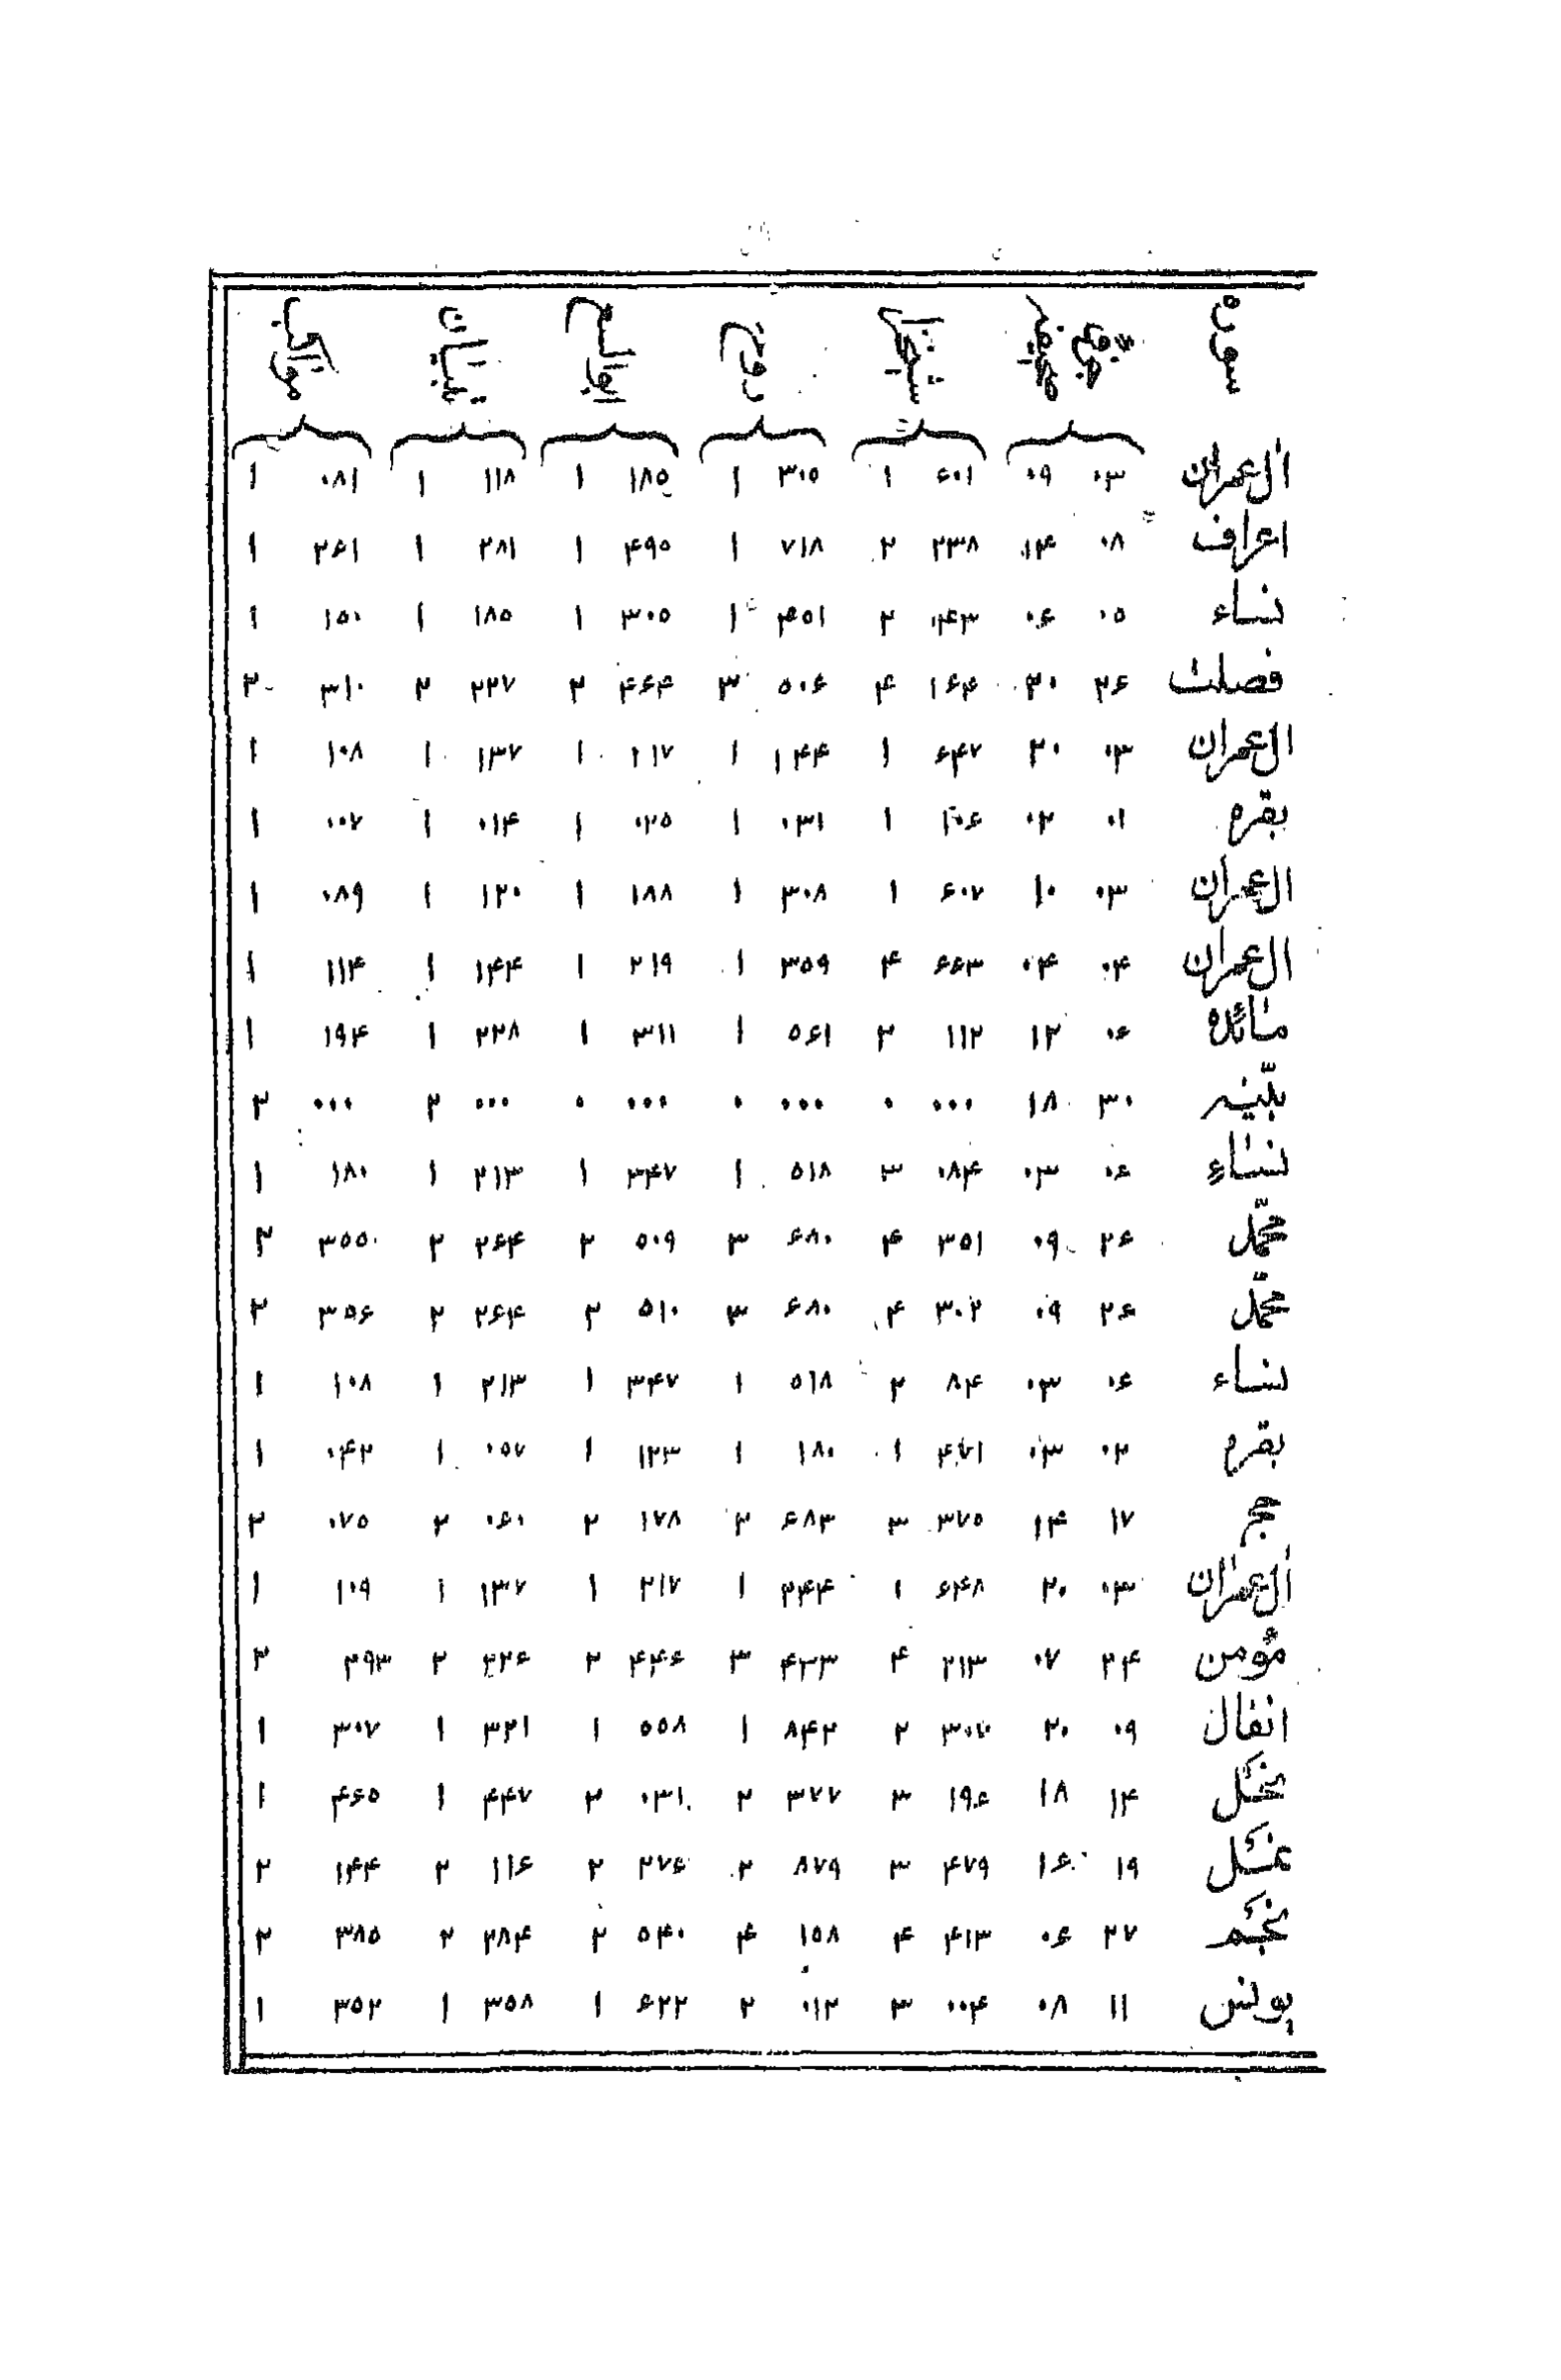 سوره جزوه صفحه شیخ روح ابوالفتوح تبیان
ال‌عمران ۰۳ ۰۹ ۶۰۱ ۱ ۳۰۵ ۱ ۱۸۵ ۱ ۱۱۸ ۱ ۰۸۱ ۱
اعراف ۰۸ ۱۴ ۲۳۸ ۲ ۷۱۸ ۱ ۴۹۵ ۱ ۲۸۱ ۱ ۲۶۱ ۱
نساء ۰۵ ۰۶ ۰۴۳ ۲ ۴۵۱ ۱ ۳۰۵ ۱ ۱۸۵ ۱ ۱۵۰ ۱
فصلت ۲۶ ۲۰ ۱۶۴ ۴ ۵۰۶ ۳ ۴۶۴ ۲ ۲۲۷ ۲ ۳۱۰ ۲
ال‌عمران ۰۳ ۲۰ ۶۴۷ ۱ ۱۴۴ ۱ ۲۱۷ ۱ ۱۳۷ ۱ ۱۰۸ ۱
بقره ۰۱ ۰۲ ۱۰۶ ۱ ۰۳۱ ۱ ۰۲۵ ۱ ۰۱۴ ۱ ۰۰۷ ۱
ال‌عمران ۰۳ ۱۰ ۶۰۷ ۱ ۳۰۸ ۱ ۱۸۸ ۱ ۱۲۰ ۱ ۰۸۹ ۱
ال‌عمران ۰۴ ۰۴ ۶۶۳ ۴ ۳۵۹ ۱ ۲۱۹ ۱ ۱۴۴ ۱ ۱۱۴ ۱
مائده ۰۶ ۱۲ ۱۱۲ ۲ ۵۶۱ ۱ ۳۱۱ ۱ ۲۲۸ ۱ ۱۹۴ ۱
بیّنه ۳۰ ۱۸ ۰۰۰ ۰ ۰۰۰ ۰ ۰۰۰ ۰ ۰۰۰ ۲ ۰۰۰ ۲
نساء ۰۶ ۰۳ ۰۸۴ ۳ ۵۱۸ ۱ ۳۴۷ ۱ ۲۱۳ ۱ ۱۸۰ ۱
محمّد ۲۶ ۰۹ ۳۵۱ ۴ ۶۸۰ ۳ ۵۰۹ ۲ ۲۶۴ ۲ ۳۵۵ ۲
محمّد ۲۶ ۰۹ ۳۰۲ ۴ ۶۸۰ ۳ ۵۱۰ ۲ ۲۶۴ ۲ ۳۵۶ ۲
نساء ۰۶ ۰۳ ۸۴ ۲ ۵۱۸ ۱ ۳۴۷ ۱ ۲۱۳ ۱ ۱۰۸ ۱
بقره ۰۲ ۰۳ ۴۷۱ ۱ ۱۸۰ ۱ ۱۲۳ ۱ ۰۵۷ ۱ ۰۴۲ ۱
حجر ۱۷ ۱۴ ۳۷۵ ۳ ۶۸۳ ۲ ۱۷۸ ۲ ۰۶۰ ۲ ۰۷۵ ۲
ال‌عمران ۰۳ ۲۰ ۶۴۸ ۱ ۲۴۴ ۱ ۲۱۷ ۱ ۱۳۷ ۱ ۱۰۹ ۱
مؤمن ۲۴ ۰۷ ۲۱۳ ۴ ۴۳۳ ۳ ۴۴۶ ۲ ۲۲۶ ۲ ۲۹۳ ۲
انفال ۰۹ ۲۰ ۳۰۷ ۲ ۸۴۲ ۱ ۵۵۸ ۱ ۳۲۱ ۱ ۳۰۷ ۱
نحل ۱۴ ۱۸ ۱۹۶ ۳ ۳۷۷ ۲ ۰۳۱ ۲ ۴۴۷ ۱ ۴۶۵ ۱
نمل ۱۹ ۱۶ ۴۷۹ ۳ ۸۷۹ ۲ ۲۷۶ ۲ ۱۱۶ ۲ ۱۴۴ ۲
نجم ۲۷ ۰۶ ۴۱۳ ۴ ۱۵۸ ۴ ۵۴۰ ۲ ۲۸۴ ۲ ۳۸۵ ۲
یونس ۱۱ ۰۸ ۰۰۴ ۳ ۰۱۲ ۲ ۶۲۲ ۱ ۳۵۸ ۱ ۳۵۲ ۱